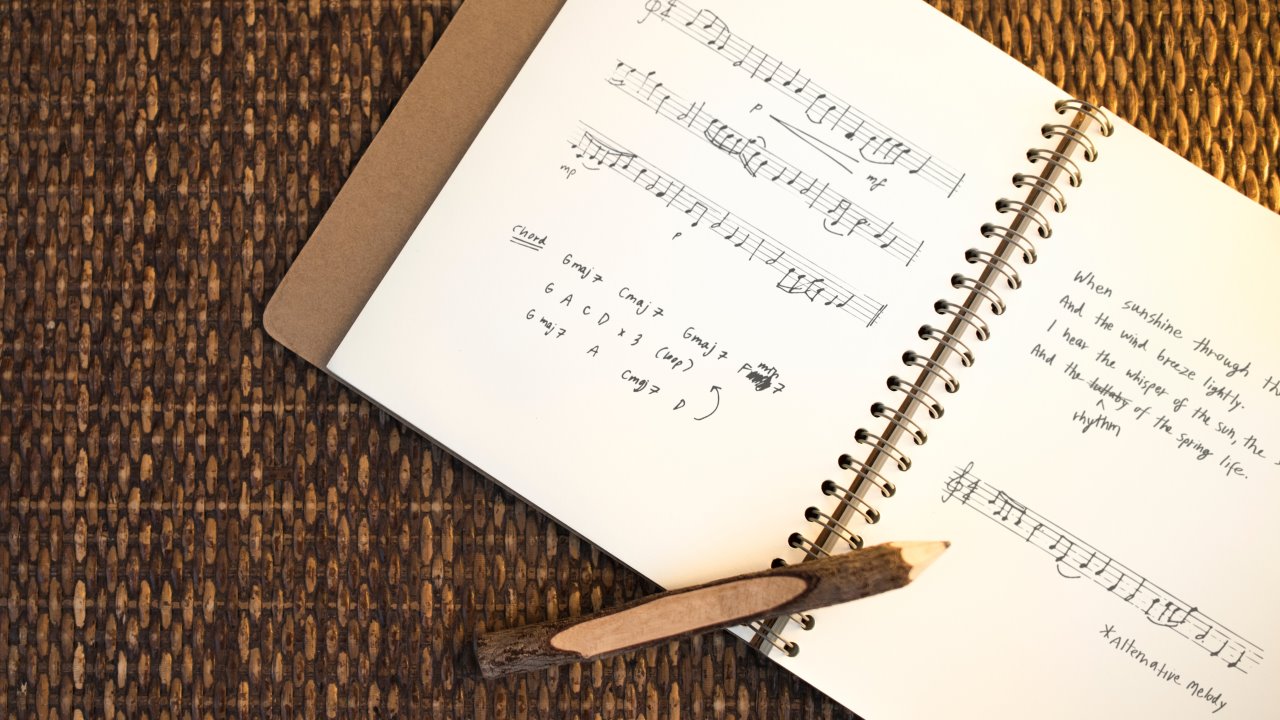 p
mf
mp
p
Chord
Gmaj7 Cmaj7 Gmaj7 Fmin7
G A C D x 3 (loop)
Gmaj7 A Cmaj7 D
When sunshine through
And the wind breeze lightly.
I hear the whisper of the sun, the
And the lullaby of the spring life.
rhythm
*Alternative Melody